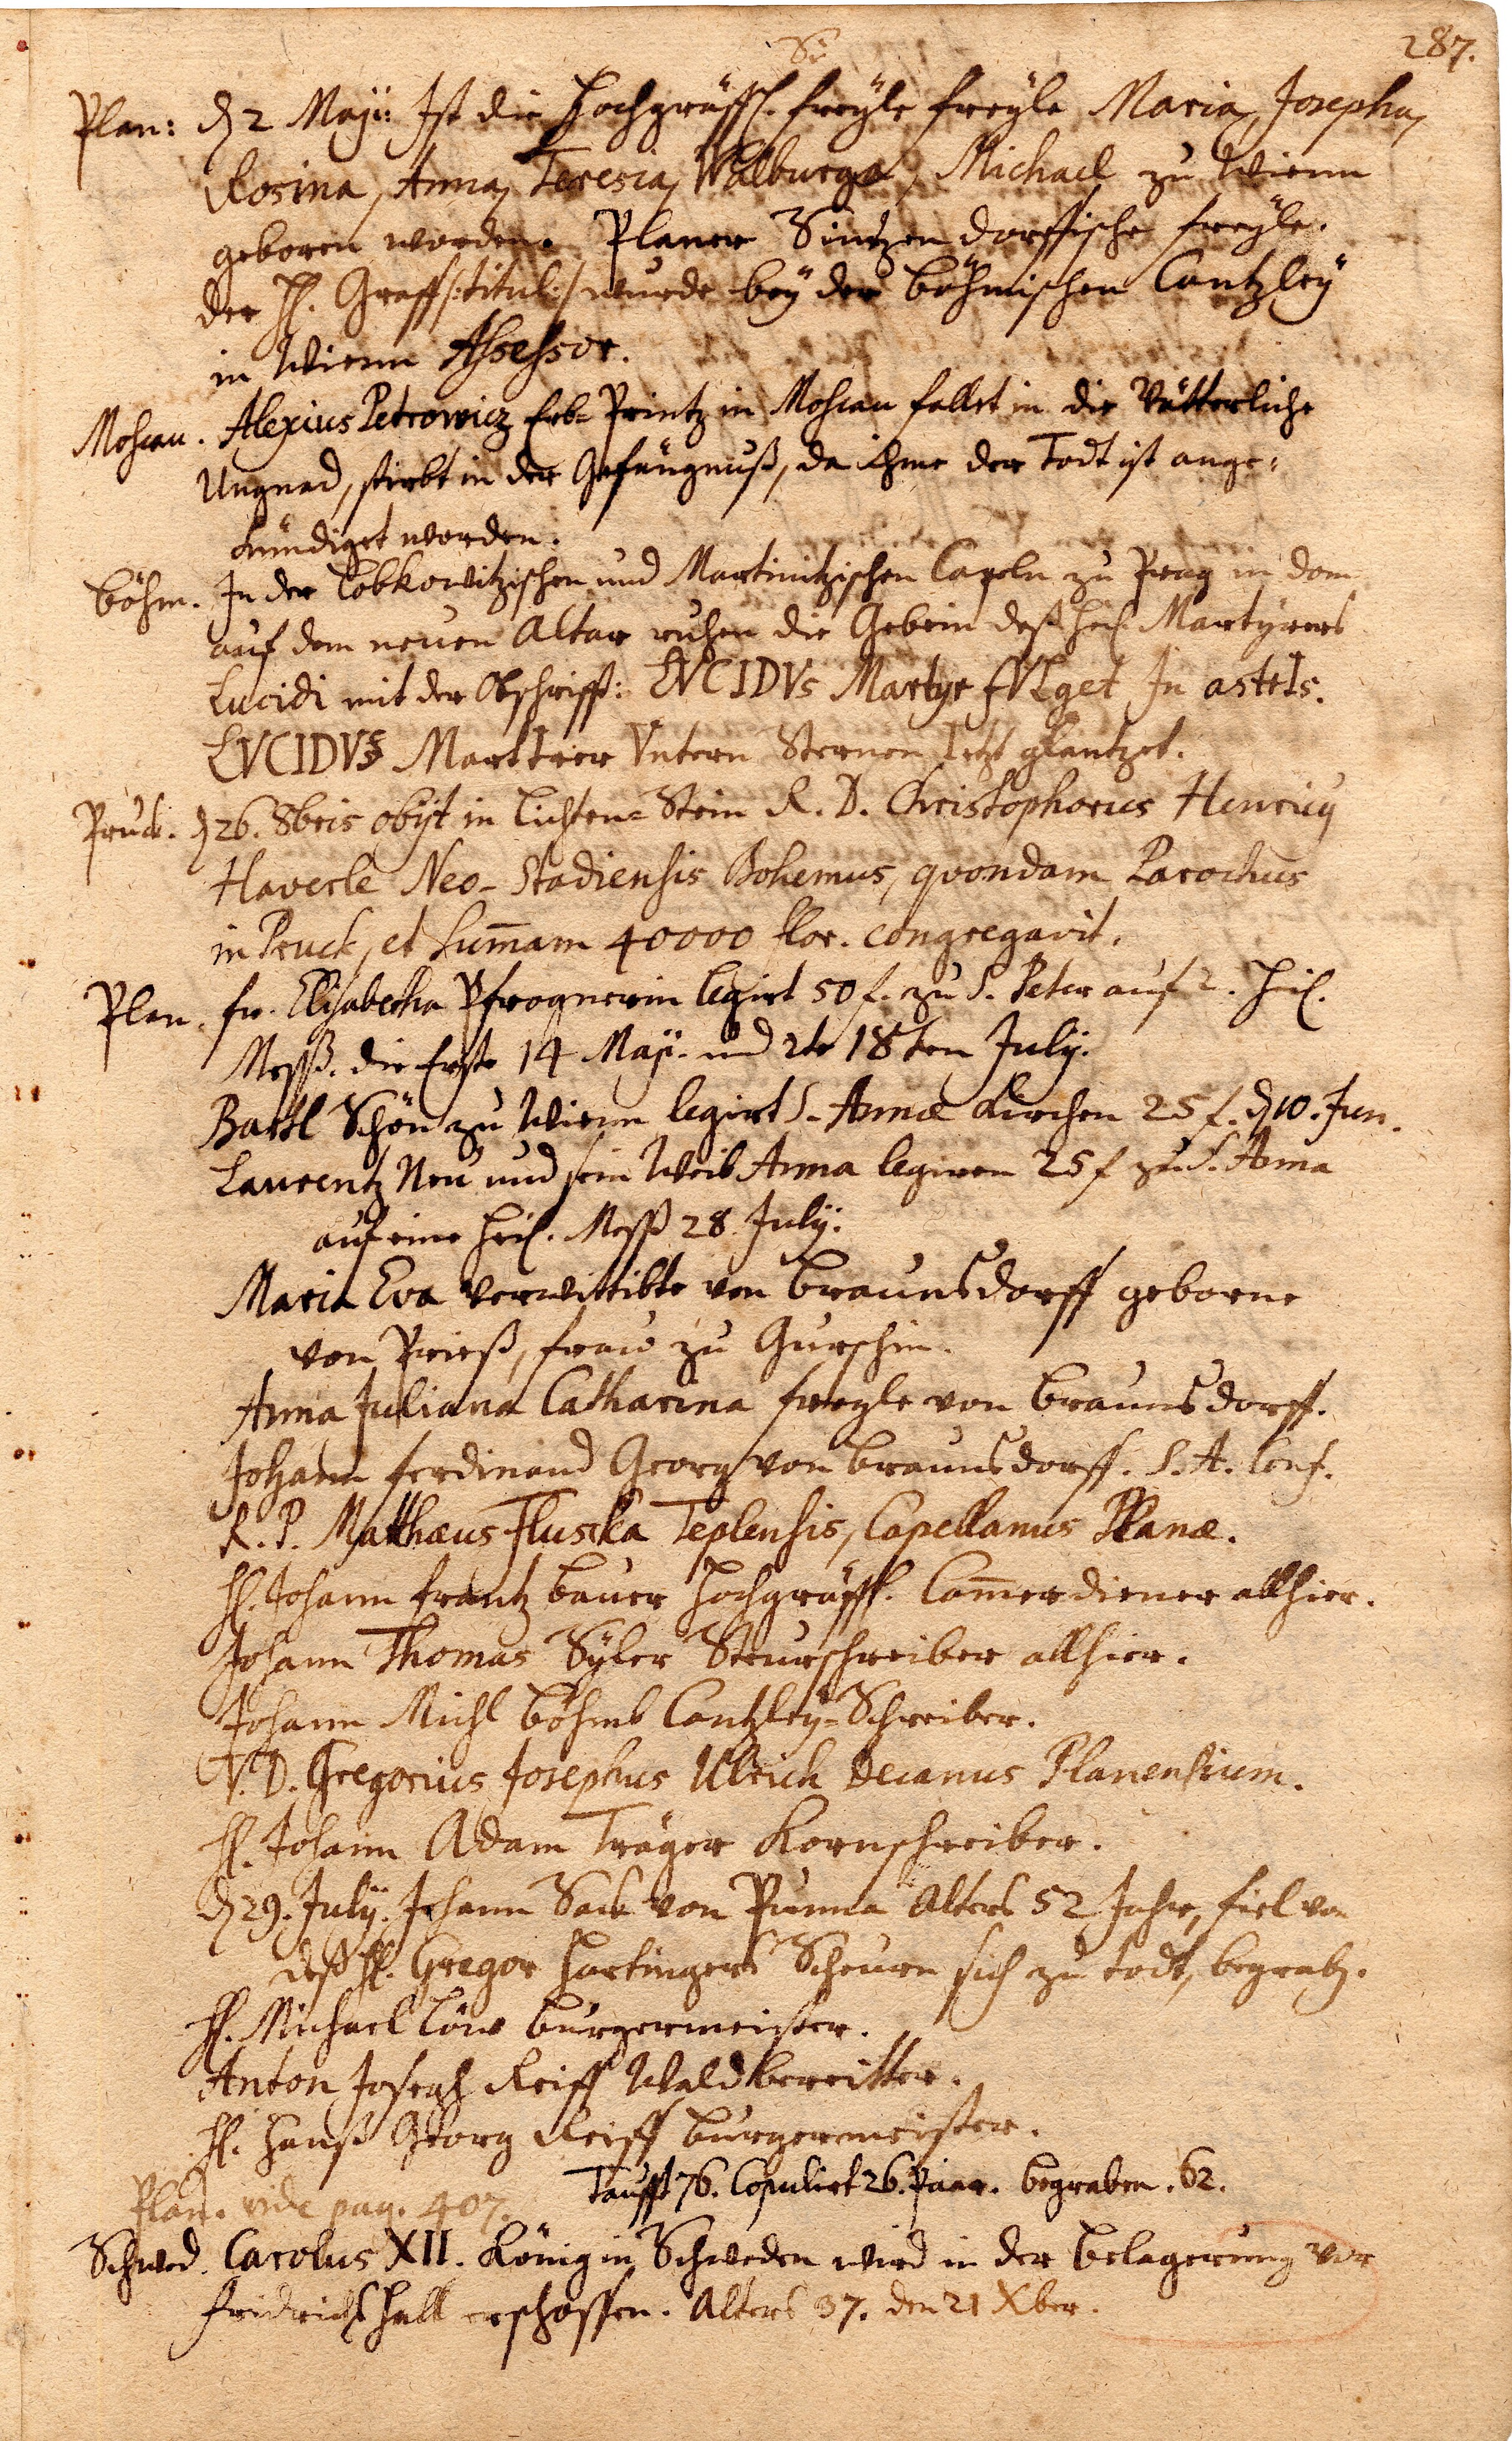 287.
Plan: d 2 Maÿ: Ist die Hochgräffl. freÿle freÿle Maria, Josepha,
Rosina, Anna, Teresia, Walburga, Michael zu Wienn
geboren worden. Planer Sintzendorffische freÿle.
der H. Graff /:titul:/ wurde beÿ der böhmischen Cantzleÿ
in Wienn Assessor.
Moscau. Alexius Petrowicz Erb-Printz in Moscau fallet in die Vätterliche
Ungnad, stirbt in der Gefängnuß, da ihme der Todt ist ange-
kündiget worden.
böhm. In der Lobkowitzischen und Martinitzischen Capeln zu Prag in dom
auf dem neuen Altar ruhen die Gebein deß heil Martÿrers
Lucidi mit der Obschrifft: LVCIDVs Martyr fVLget In astrIs.
LVCIDVs Marttrer Vntern Sternen Ietzt glantzet.
Pruck. d 26. 8bris obijt in Lichten-Stein R. D. Christophorus Henricus
Haverle Neo-Stadiensis Bohemus, quondam Parochus
in Pruck, et Sum̄am 40000 flor. congregavit.
Plan. fr. Elisabetha Pfrognerin legirt 50 f. zu S. Peter auf 2. heil.
Messß. die Erste 14 Maÿ. und 2te 18ten Julÿ.
Bartl Schön zu Wienn legirt S. Annæ Kirchen 25 f. d 10. Jun.
Laurentz Neu und sein Weib Anna legiren 25 f zu S. Anna
auf eine heil. Mess 28 Julÿ.
Maria Eva verwittibte von Braunsdorff geborne
von Prieß, frau zu Gurschin.
Anna Juliana Catharina freyle von Braunsdorff.
Johann ferdinand Georg von Braunsdorff. S. A. Conf.
R. P. Matthæus Fluscka Teplensis, Capellanus Planæ.
H. Johann frantz Bauer Hochgräffl. Com̄erdiener allhier.
Johann Thomas Sÿler Steurschreiber allhier.
Johann Michl Böhmb Cantzleÿ-Schreiber.
V. D. Gregorius Josephus Ulrich Decanus Planensium.
H. Johann Adam Träger Kornschreiber.
d 29. Julÿ. Johann Sack von Punna Alters 52 Jahr, fiel von
deß H. Gregor Hartingers Scheuren sich zu todt, begrab.
H. Michael Löw burgermeister.
Anton Joseph Reiff Waldbereitter.
H. Hanß Georg Reiff burgermeister.
Taufft 76. Copulirt 26. Paar. begraben. 62.
Plan. vide pag. 407.
Schwed. Carolus XII. König in Schweden wird in der belagerung vor
fridrichshall erschossen. Alters 37. den 21 Xber.